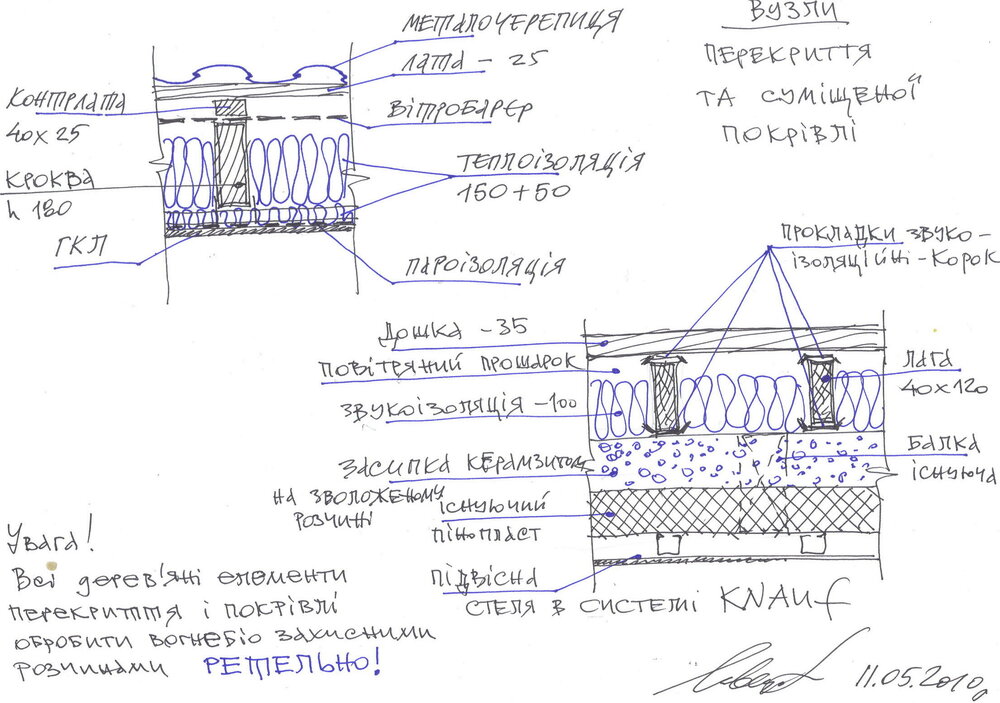 ВУЗЛИ
ПЕРЕКРИТТЯ
ТА СУМІЩЕНОЇ
ПОКРІВЛІ
МЕТАЛОЧЕРЕПИЦЯ
ЛАТА - 25
КОНТРЛАТА
40х25
ВІТРОБАРЄР
ТЕПЛОІЗОЛЯЦІЯ
150+50
КРОКВА
h 180
ГКЛ
ПАРОІЗОЛЯЦІЯ
ПРОКЛАДКИ ЗВУКО-
ІЗОЛЯЦІЙНІ-КОРОК
ДОШКА -35
ПОВІТРЯНИЙ ПРОШАРОК
ЛАГА
40х120
ЗВУКОІЗОЛЯЦІЯ -100
БАЛКА
ІСНУЮЧА
ЗАСИПКА КЕРАМЗИТОМ
НА ЗВОЛОЖЕНОМУ
РОЗЧИНІ
ІСНУЮЧИЙ
ПІНОПЛАСТ
ПІДВІСНА
СТЕЛЯ В СИСТЕМІ KNAUf
Увага!
Всі дерев'яні елементи
перекриття і покрівлі
обробити вогнебіо захисними
розчинами РЕТЕЛЬНО!
11.05.2010р